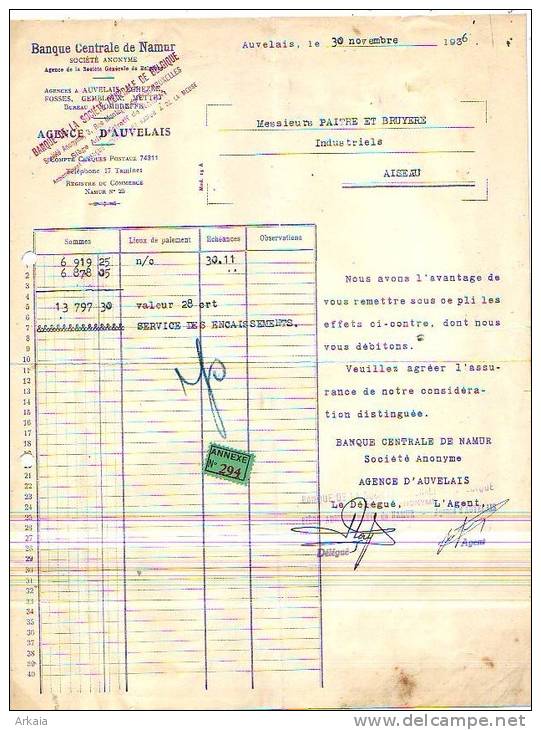 Banque Centrale de Namur
SOCIÉTÉ ANONYME
Agence de la Société Générale de
AGENCES A AUVELAIS,
FOSSES, GEMBLOUX, METTET
BUREAU
AGENCE D'AUVELAIS
COMPTE CHÈQUES POSTAUX 74311
Téléphone 17 Tamines
REGISTRE DU COMMERCE
NAMUR N° 25
BANQUE DE LA SOCIÉTÉ GÉNÉRALE DE BELGIQUE
Auvelais, le 30 novembre 1936
Messieurs PAITRE ET BRUYERE
Industriels
AISEAU
Mod. 15 A
Sommes Lieux de paiement Echéances Observations
1 6 919 25 n/c 30.11
2 6.878 05 ..
3
4
5 13 797 30 valeur 28 crt
6
7 SERVICE DES ENCAISSEMENTS.
8
9
10
11
12
13
14
15
16
17
18
19
20
21
22
23
24
25
26
27
28
29
30
31
32
33
34
35
36
37
38
39
40
ANNEXE
N° 294
Nous avons l'avantage de
vous remettre sous ce pli les
effets ci-contre, dont nous
vous débitons.
Veuillez agréer l'assu-
rance de notre considéra-
tion distinguée.
BANQUE CENTRALE DE NAMUR
Société Anonyme
AGENCE D'AUVELAIS
Le Délégué, L'Agent,
Délégué Agent
Arkaia
www.delcampe.net